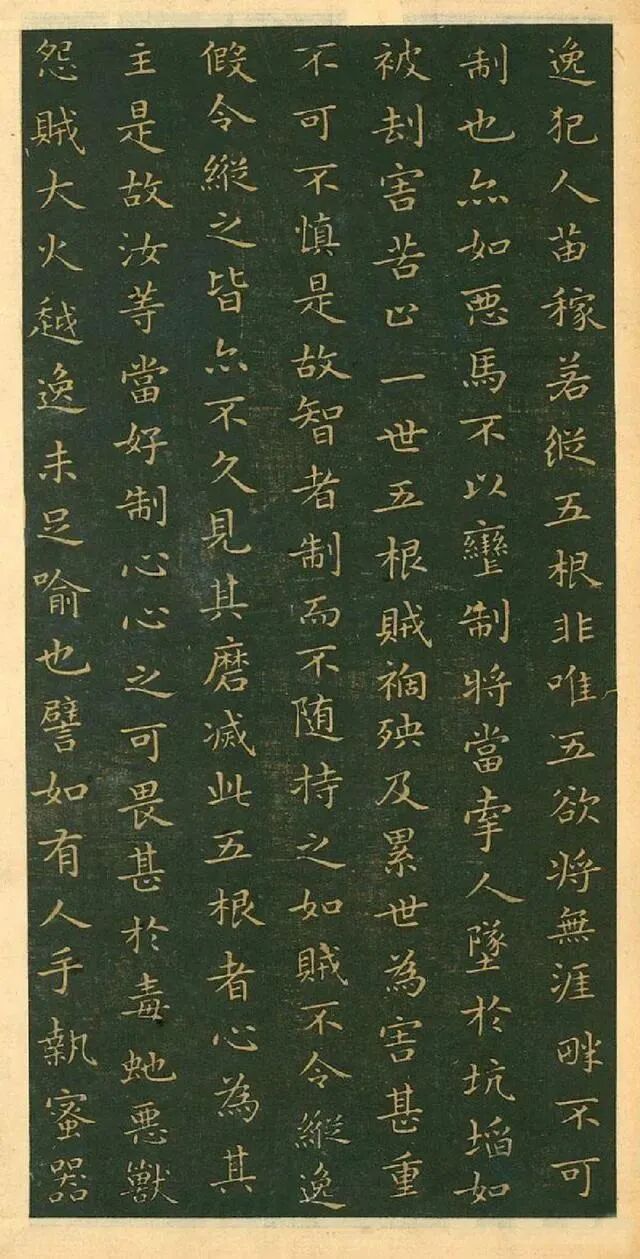 逸犯人苗稼若縱五根非唯五欲将無涯畔不可
制也亦如惡馬不以轡制将當牽人墜於坑埳如
被刦害苦止一世五根賊禍殃及累世為害甚重
不可不慎是故智者制而不随持之如賊不令縱逸
假令縱之皆亦不久見其磨滅此五根者心為其
主是故汝等當好制心心之可畏甚於毒虵惡獸
怨賊大火越逸未足喻也譬如有人手執蜜器